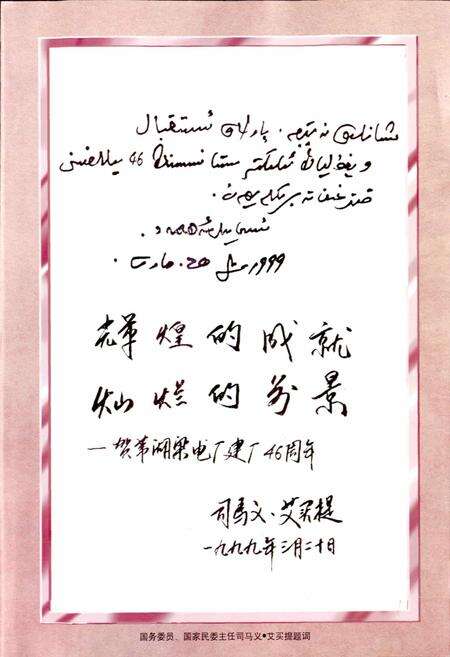 شانلىق نەتىجە. پارلاق ئىستىقبال
46 يىللىقىنى
قىزغىن تەبرىكلەيمەن.
ئىسمائىل ئەھمەد.
1999-يىل 20-مارت.
辉煌的成就
灿烂的前景
一贺苇湖梁电厂建厂46周年
司马义·艾买提
一九九九年三月二十日
国务委员、国家民委主任司马义•艾买提题词